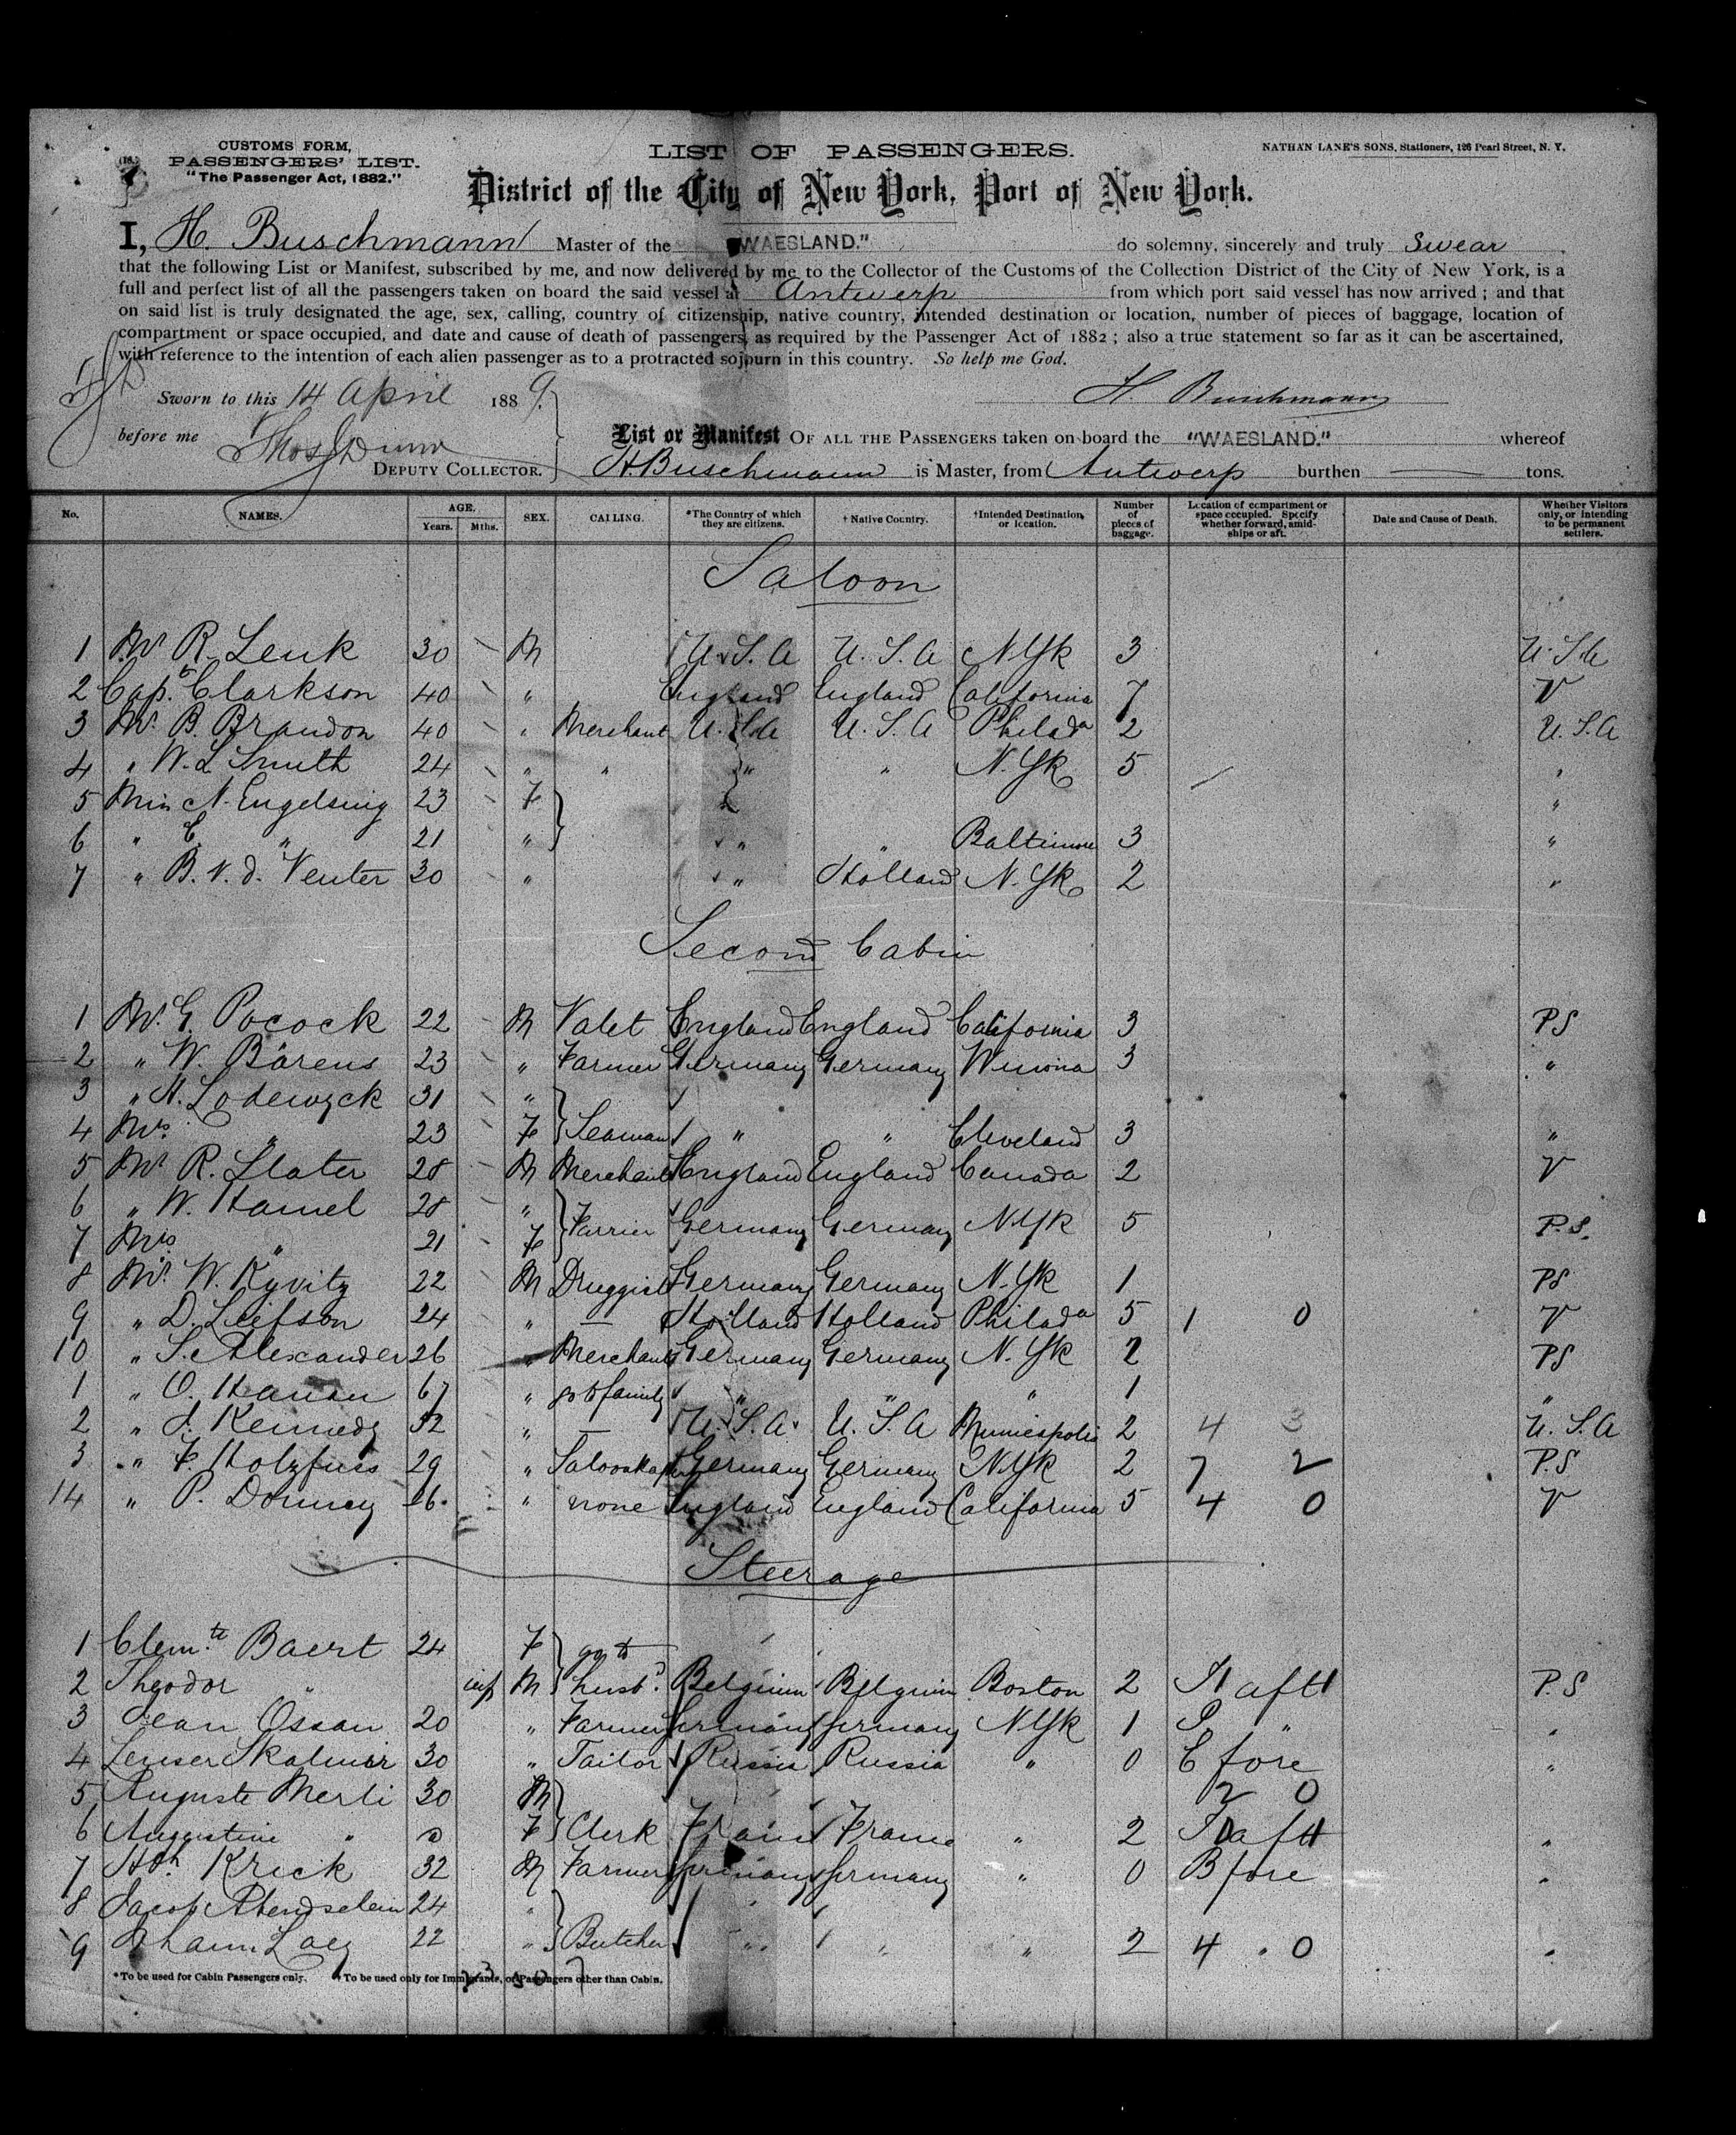 CUSTOMS FORM,
PASSENGERS' LIST.
"The Passenger Act, 1882."
LIST OF PASSENGERS.
NATHAN LANE'S SONS, Stationers, 126 Pearl Street, N. Y.
District of the City of New York, Port of New York.
I, H. Buschmann Master of the "WAESLAND." do solemny, sincerely and truly swear
that the following List or Manifest, subscribed by me, and now delivered by me to the Collector of the Customs of the Collection District of the City of New York, is a
full and perfect list of all the passengers taken on board the said vessel at Antwerp from which port said vessel has now arrived; and that
on said list is truly designated the age, sex, calling, country of citizenship, native country, intended destination or location, number of pieces of baggage, location of
compartment or space occupied, and date and cause of death of passengers, as required by the Passenger Act of 1882; also a true statement so far as it can be ascertained,
with reference to the intention of each alien passenger as to a protracted sojourn in this country. So help me God.
Sworn to this 14 April 1889.
H. Buschmann
before me Thos Dunn
DEPUTY COLLECTOR.
List or Manifest OF ALL THE PASSENGERS taken on board the "WAESLAND." whereof
H. Buschmann is Master, from Antwerp burthen tons.
No. NAMES. AGE. Years. Mths. SEX. CALLING. *The Country of which they are citizens. †Native Country. †Intended Destination, or location. Number of pieces of baggage. Location of compartment or space occupied. Specify whether forward, amidships or aft. Date and Cause of Death. Whether Visitors only, or intending to be permanent settlers.
Saloon
1 Mr R. Lenk 30 M U.S.A U.S.A N.Yk 3 U.S.A
2 Capt. Clarkson 40 " England England California 7 V
3 Mr. B. Brandon 40 " Merchant U.S.A U.S.A Philada 2 U.S.A
4 " W. L Smith 24 " " " " N.Yk 5 "
5 Miss N. Engelsing 23 F "
6 " C. " 21 " " " Baltimore 3 "
7 " B. v. d. Venter 30 " " Holland N.Yk 2 "
Second Cabin
1 Mr. G. Pocock 22 M Valet England England California 3 PS
2 " W. Bärens 23 " Farmer Germany Germany Winona 3 "
3 " H. Lodewyck 31 "
4 Mrs. " 23 F Seaman " " Cleveland 3 "
5 Mr R. Slater 28 M Merchant England England Canada 2 V
6 " W. Hamel 28 "
7 Mrs. " 21 F Farrier Germany Germany N.Yk 5 P.S.
8 Mr. W. Kyvitz 22 M Druggist Germany Germany N.Yk 1 PS
9 " D. Leifson 24 " — Holland Holland Philada 5 1 0 V
10 " S. Alexander 26 " Merchant Germany Germany N.Yk 2 PS
1 " O. Hanan 67 " go to family " " " 1 "
2 " J. Kennedy 32 " — U.S.A. U.S.A Minneapolis 2 4 3 U.S.A
3 " F. Holzfuss 29 " Germany Germany N.Yk 2 7 2 P.S
14 " P. 26 " none England England California 5 4 0 V
Steerage
1 Clem.te Baert 24 F go to
2 Theodor " inf M husbd. Belgium Belgium Boston 2 H aft P.S
3 Jean Ossan 20 " Farmer Germany Germany N.Yk 1 " "
4 Lenser Skalmir 30 " Tailor Russia Russia " 0 C fore "
5 Auguste Merli 30 M 2 0
6 Augustine " F Clerk France France " 2 aft "
7 Hch Krick 32 M Farmer Germany Germany " 0 B fore "
8 Jacob Abendschein 24 "
9 Johann 22 " Butcher " " " 2 4 0 "
*To be used for Cabin Passengers only. †To be used only for Immigrants, or Passengers other than Cabin.